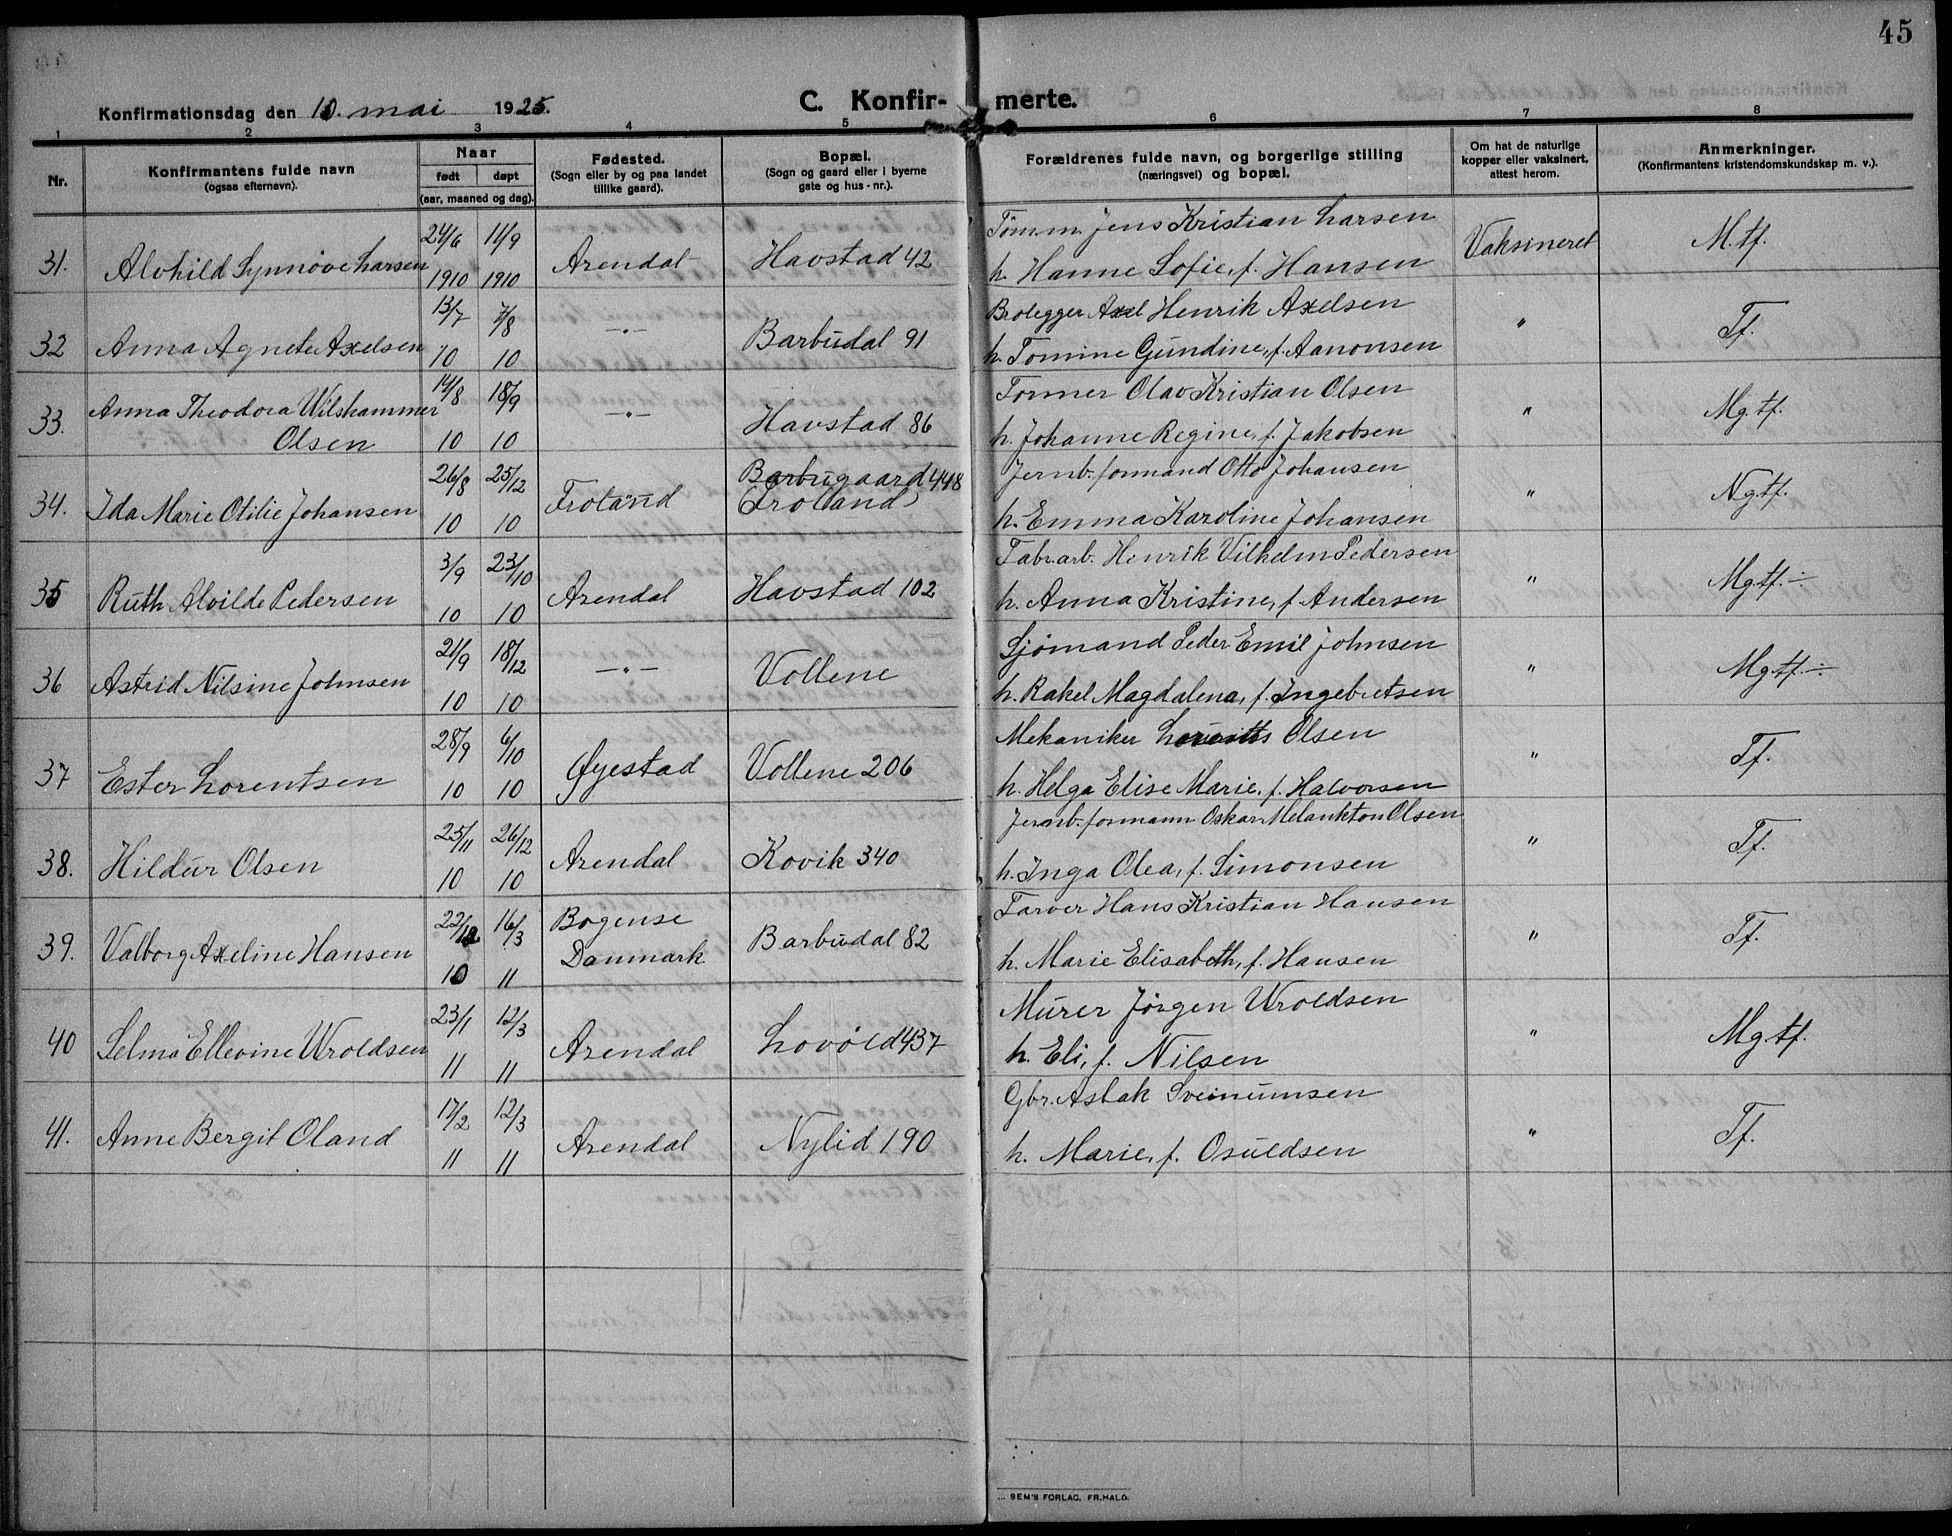 45
Konfirmationsdag den 10. mai 1925.
C. Konfir- merte.
1 2 3 4 5 6 7 8
Nr.
Konfirmantens fulde navn
(ogsaa efternavn).
Naar
født døpt
(aar, maaned og dag).
Fødested.
(Sogn eller by og paa landet
tillike gaard).
Bopæl.
(Sogn og gaard eller i byerne
gate og hus-nr.).
Forældrenes fulde navn, og borgerlige stilling
(næringsvei) og bopæl.
Om hat de naturlige
kopper eller vaksinert,
attest herom.
Anmerkninger.
(Konfirmantens kristendomskundskap m. v.).
24/6 11/9 Tømm. Jens Kristian Larsen
31. Alvhild Synnøve Larsen 1910 1910 Arendal Havstad 42 h. Hanne Sofie, f. Hansen Vaksineret M.tf.
13/7 7/8 Brolegger Axel Henrik Axelsen
32 Anna Agnete Axelsen 10 10 —"— Barbudal 91 h. Tomine Gundine, f. Aanonsen " Tf.
14/8 18/9 Former Olav Kristian Olsen
33. Anna Theodora Wilshammer
Olsen 10 10 —"— Havstad 86 h. Johanne Regine, f. Jakobsen " Mg.tf.
26/8 25/12 Barbugaard 448 Jernb.formand Otto Johansen
34. Ida Marie Otilie Johansen 10 10 Froland (Frolland) h. Emma Karoline Johansen " Ng.tf.
3/9 23/10 Fabr.arb. Henrik Vilhelm Pedersen
35 Ruth Alvilde Pedersen 10 10 Arendal Havstad 102 h. Anna Kristine, f. Andersen " Mg.tf. ÷
21/9 18/12 Sjømand Peder Emil Johnsen
36 Astrid Nilsine Johnsen 10 10 —"— Vollene h. Rakel Magdalena, f. Ingebretsen " Mg.tf. ÷
28/9 6/10 Mekaniker Olsen
37 Ester Lorentsen 10 10 Øyestad Vollene 206 h. Helga Elise Marie, f. Halvorsen " Tf.
25/11 26/12 Jernb.formann Oskar Melankton Olsen
38. Hildur Olsen 10 10 Arendal Kovik 340 h. Inga Olea, f. Simonsen " Tf.
22/12 16/3 Bogense Farver Hans Kristian Hansen
39. Valborg Axeline Hansen 10 11 Danmark Barbudal 82 h. Marie Elisabeth, f. Hansen " Tf.
23/1 12/3 Murer Jørgen Wroldsen
40 Selma Ellevine Wroldsen 11 11 Arendal Lovold 437 h. Eli, f. Nilsen " Mg.tf.
17/2 12/3 Gbr. Aslak Sveinumsen
41. Anne Bergit Oland 11 11 Arendal Nylid 190 h. Marie, f. Osuldsen " Tf.
SEM'S FORLAG, FR.HALD.